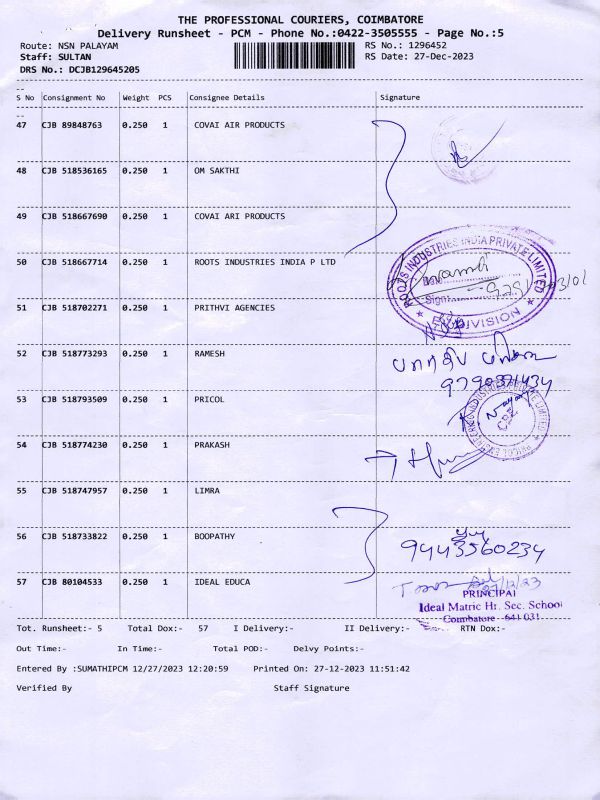 THE PROFESSIONAL COURIERS, COIMBATORE
Delivery Runsheet - PCM - Phone No.:0422-3505555 - Page No.:5
Route: NSN PALAYAM RS No.: 1296452
Staff: SULTAN RS Date: 27-Dec-2023
DRS No.: DCJB129645205
S No Consignment No Weight PCS Consignee Details Signature
47 CJB 89848763 0.250 1 COVAI AIR PRODUCTS
48 CJB 518536165 0.250 1 OM SAKTHI
49 CJB 518667690 0.250 1 COVAI ARI PRODUCTS
50 CJB 518667714 0.250 1 ROOTS INDUSTRIES INDIA P LTD
ROOTS INDUSTRIES INDIA PRIVATE LIMITED
Sign
DIVISION
51 CJB 518702271 0.250 1 PRITHVI AGENCIES
52 CJB 518773293 0.250 1 RAMESH
9790371434
53 CJB 518793509 0.250 1 PRICOL
54 CJB 518774230 0.250 1 PRAKASH
55 CJB 518747957 0.250 1 LIMRA
56 CJB 518733822 0.250 1 BOOPATHY
9443560234
57 CJB 80104533 0.250 1 IDEAL EDUCA
27/12/23
PRINCIPAL
Ideal Matric Hr. Sec. School
Coimbatore - 641 031
Tot. Runsheet:- 5 Total Dox:- 57 I Delivery:- II Delivery:- RTN Dox:-
Out Time:- In Time:- Total POD:- Delvy Points:-
Entered By :SUMATHIPCM 12/27/2023 12:20:59 Printed On: 27-12-2023 11:51:42
Verified By Staff Signature